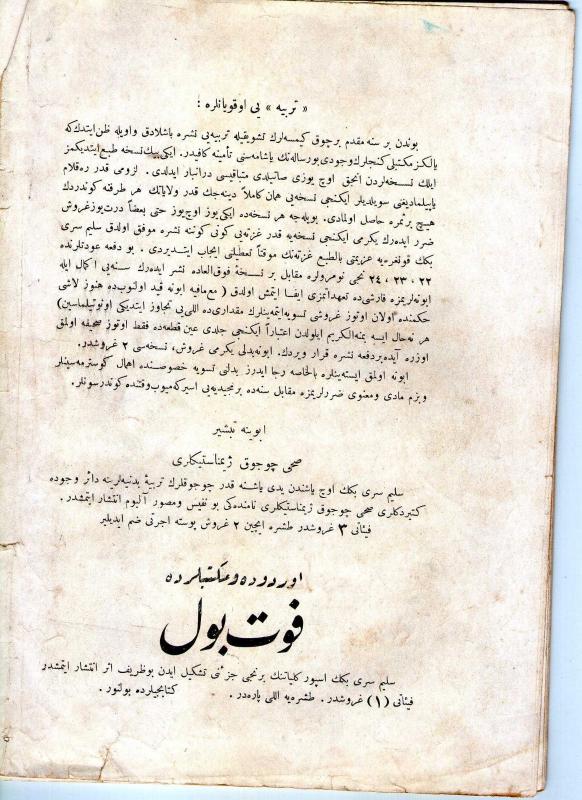 « تربیه » یی اوقویانلره :
بوندن بر سنه مقدم برچوق کیمسه‌لرك تشویقیله تربیه‌یی نشره باشلادق واویله ظن ایتدك که
یالکز مکتبلی کنجلرك وجودی بورساله‌نك یاشامه‌سنی تأمینه کافیدر. ایکی بیك نسخه طبع ایتدیکمز
ایلك نسخه‌لردن انجق اوچ یوزی صاتیلدی متباقیسی درانبار ایدلدی . لزومی قدر ره‌قلام
یاپیلمادیغنی سویلدیلر ایکنجی نسخه‌یی همان کاملاً دینه‌جك قدر ولایاتك هر طرفنه کوندردك
هیچ برثمره حاصل اولمادی. بویله‌جه هر نسخه‌ده ایکی‌یوز اوچ‌یوز حتی بعضاً درت‌یوزغروش
ضرر ایده‌رك یکرمی ایکنجی نسخه‌یه قدر غزته‌یی کونی کوننه نشره موفق اولدق سلیم سری
بکك قونغره‌یه عزیمتی بالطبع غزته‌نك موقتاً تعطیلنی ایجاب ایتدیردی . بو دفعه عودتلرنده
۲۲ ، ۲۳ ، ۲٤ نجی نومرولره مقابل بر نسخهٔ فوق‌العاده نشر ایده‌رك سنه‌یی اکمال ایله
ابونه‌لریمزه قارشی‌ده تعهداتمزی ایفا ایتمش اولدق ( مع‌مافیه ابونه قید اولنوب‌ده هنوز لاشی
حکمنده اولان اوتوز غروشی تسویه‌ایتمه‌ینلرك مقداری‌ده اللی‌یی تجاوز ایتدیکی اونوتیلماسین)
هر نه‌حال ایسه بمنه‌الکریم ایلولدن اعتباراً ایکنجی جلدی عین قطعه‌ده فقط اوتوز صحیفه اولمق
اوزره آیده‌بردفعه نشره قرار ویردك. ابونه‌بدلی یکرمی غروش، نسخه‌سی ۲ غروشدر.
ابونه اولمق ایسته‌ینلره بالخاصه رجا ایدرز بدلنی تسویه خصوصنده اهمال کوسترمه‌سینلر
وبزم مادی ومعنوی ضررلریمزه مقابل سنه‌ده برمجیدیه‌یی اسیرکه‌میوب‌وقتنده‌کوندرسونلر.
ابوینه تبشیر
صحی چوجوق ژیمناستیکلری
سلیم سری بکك اوچ یاشندن یدی یاشنه قدر چوجوقلرك تربیهٔ بدنیه‌لرینه دائر وجوده
کتیردکلری صحی چوجوق ژیمناستیکلری نامنده‌کی بو نفیس ومصور آلبوم انتشار ایتمشدر.
فیئاتی ۳ غروشدر طشره ایچین ۲ غروش پوسته اجرتی ضم ایدیلیر
اوردوده ومکتبلرده
فوت بول
سلیم سری بکك اسپور کلیاتنك برنجی جزئنی تشکیل ایدن بوظریف اثر انتشار ایتمشدر
فیئاتی (۱) غروشدر. طشره‌یه اللی پاره‌در . کتابجیلرده بولنور.